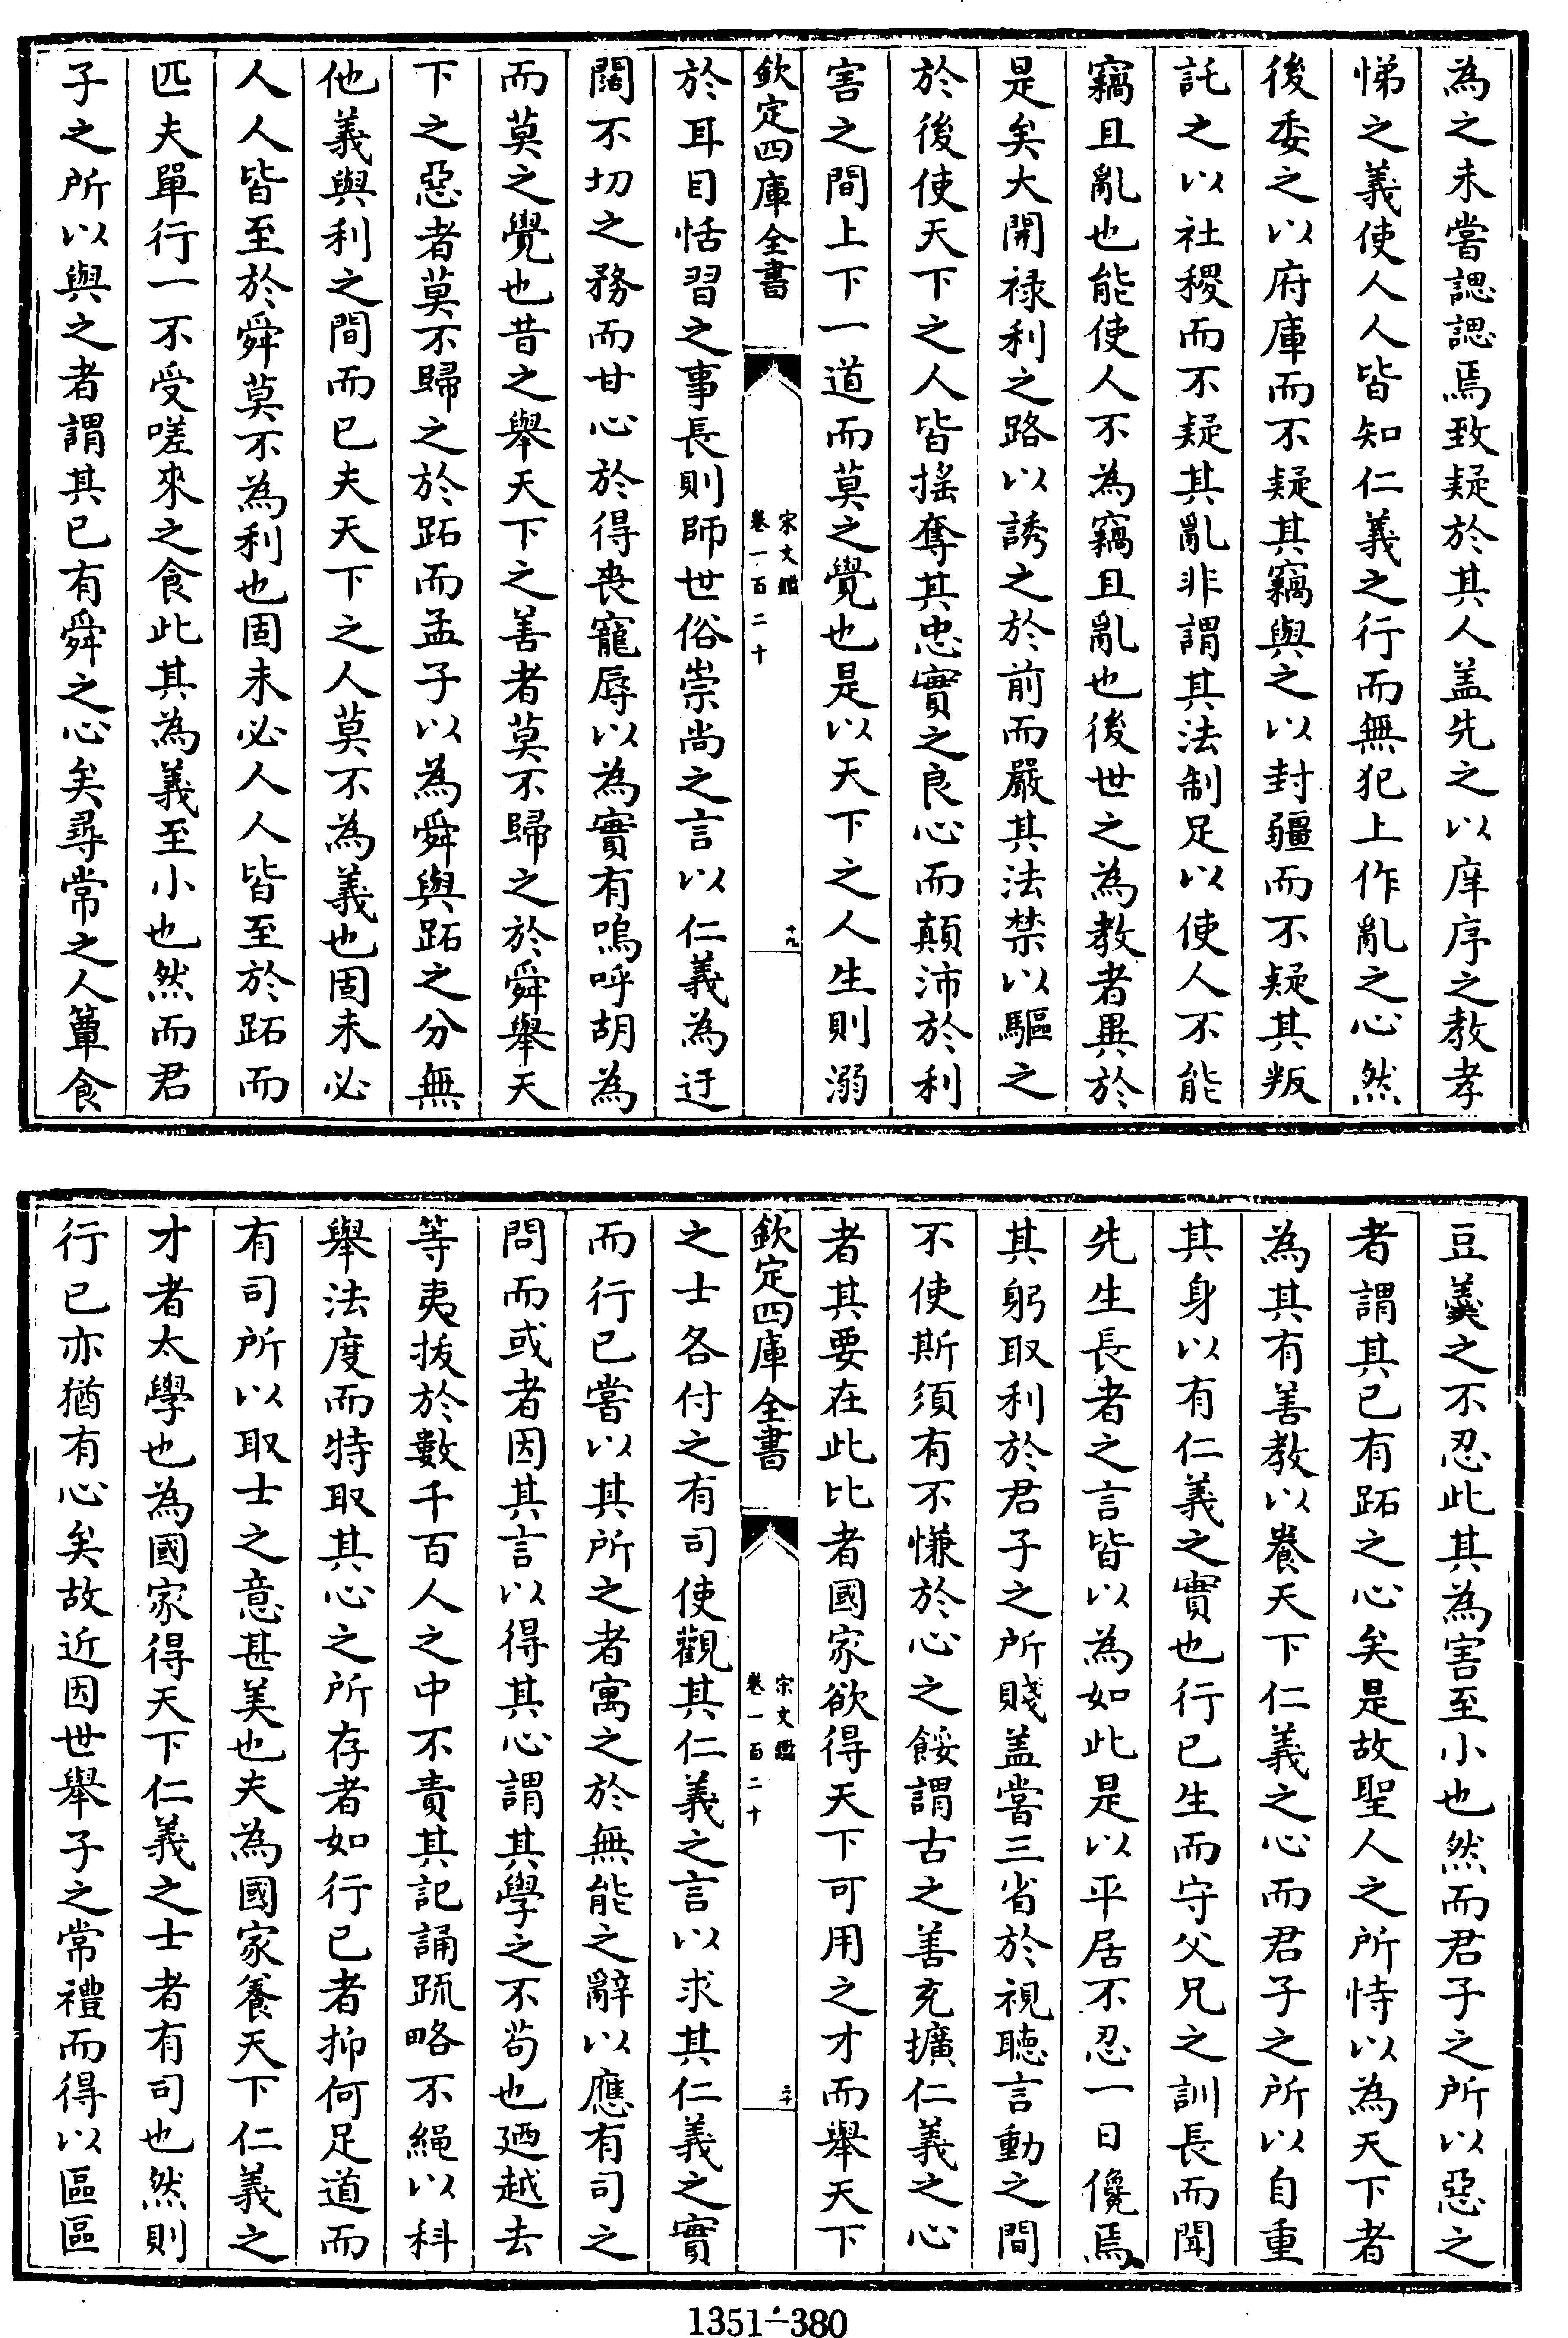 為之未嘗諰諰焉致疑於其人盖先之以庠序之教孝
悌之義使人人皆知仁義之行而無犯上作亂之心然
後委之以府庫而不疑其竊與之以封疆而不疑其叛
託之以社稷而不疑其亂非謂其法制足以使人不能
竊且亂也能使人不為竊且亂也後世之為教者異於
是矣大開禄利之路以誘之於前而嚴其法禁以驅之
於後使天下之人皆搖奪其忠實之良心而顛沛於利
害之間上下一道而莫之覺也是以天下之人生則溺
欽定四庫全書
宋文鑑
卷一百二十
十九
於耳目恬習之事長則師世俗崇尚之言以仁義為迂
闊不切之務而甘心於得喪寵辱以為實有嗚呼胡為
而莫之覺也昔之舉天下之善者莫不歸之於舜舉天
下之惡者莫不歸之於跖而孟子以為舜與跖之分無
他義與利之間而已夫天下之人莫不為義也固未必
人人皆至於舜莫不為利也固未必人人皆至於跖而
匹夫單行一不受嗟來之食此其為義至小也然而君
子之所以與之者謂其已有舜之心矣尋常之人簞食
豆羮之不忍此其為害至小也然而君子之所以惡之
者謂其已有跖之心矣是故聖人之所恃以為天下者
為其有善教以養天下仁義之心而君子之所以自重
其身以有仁義之實也行已生而守父兄之訓長而聞
先生長者之言皆以為如此是以平居不忍一日儳焉
其躬取利於君子之所賤盖嘗三省於視聽言動之間
不使斯須有不慊於心之餒謂古之善充擴仁義之心
者其要在此比者國家欲得天下可用之才而舉天下
欽定四庫全書
宋文鑑
卷一百二十
二十
之士各付之有司使觀其仁義之言以求其仁義之實
而行已嘗以其所之者寓之於無能之辭以應有司之
問而或者因其言以得其心謂其學之不茍也廼越去
等夷拔於數千百人之中不責其記誦䟽略不繩以科
舉法度而特取其心之所存者如行已者抑何足道而
有司所以取士之意甚美也夫為國家養天下仁義之
才者太學也為國家得天下仁義之士者有司也然則
行已亦猶有心矣故近因世舉子之常禮而得以區區
1351-380